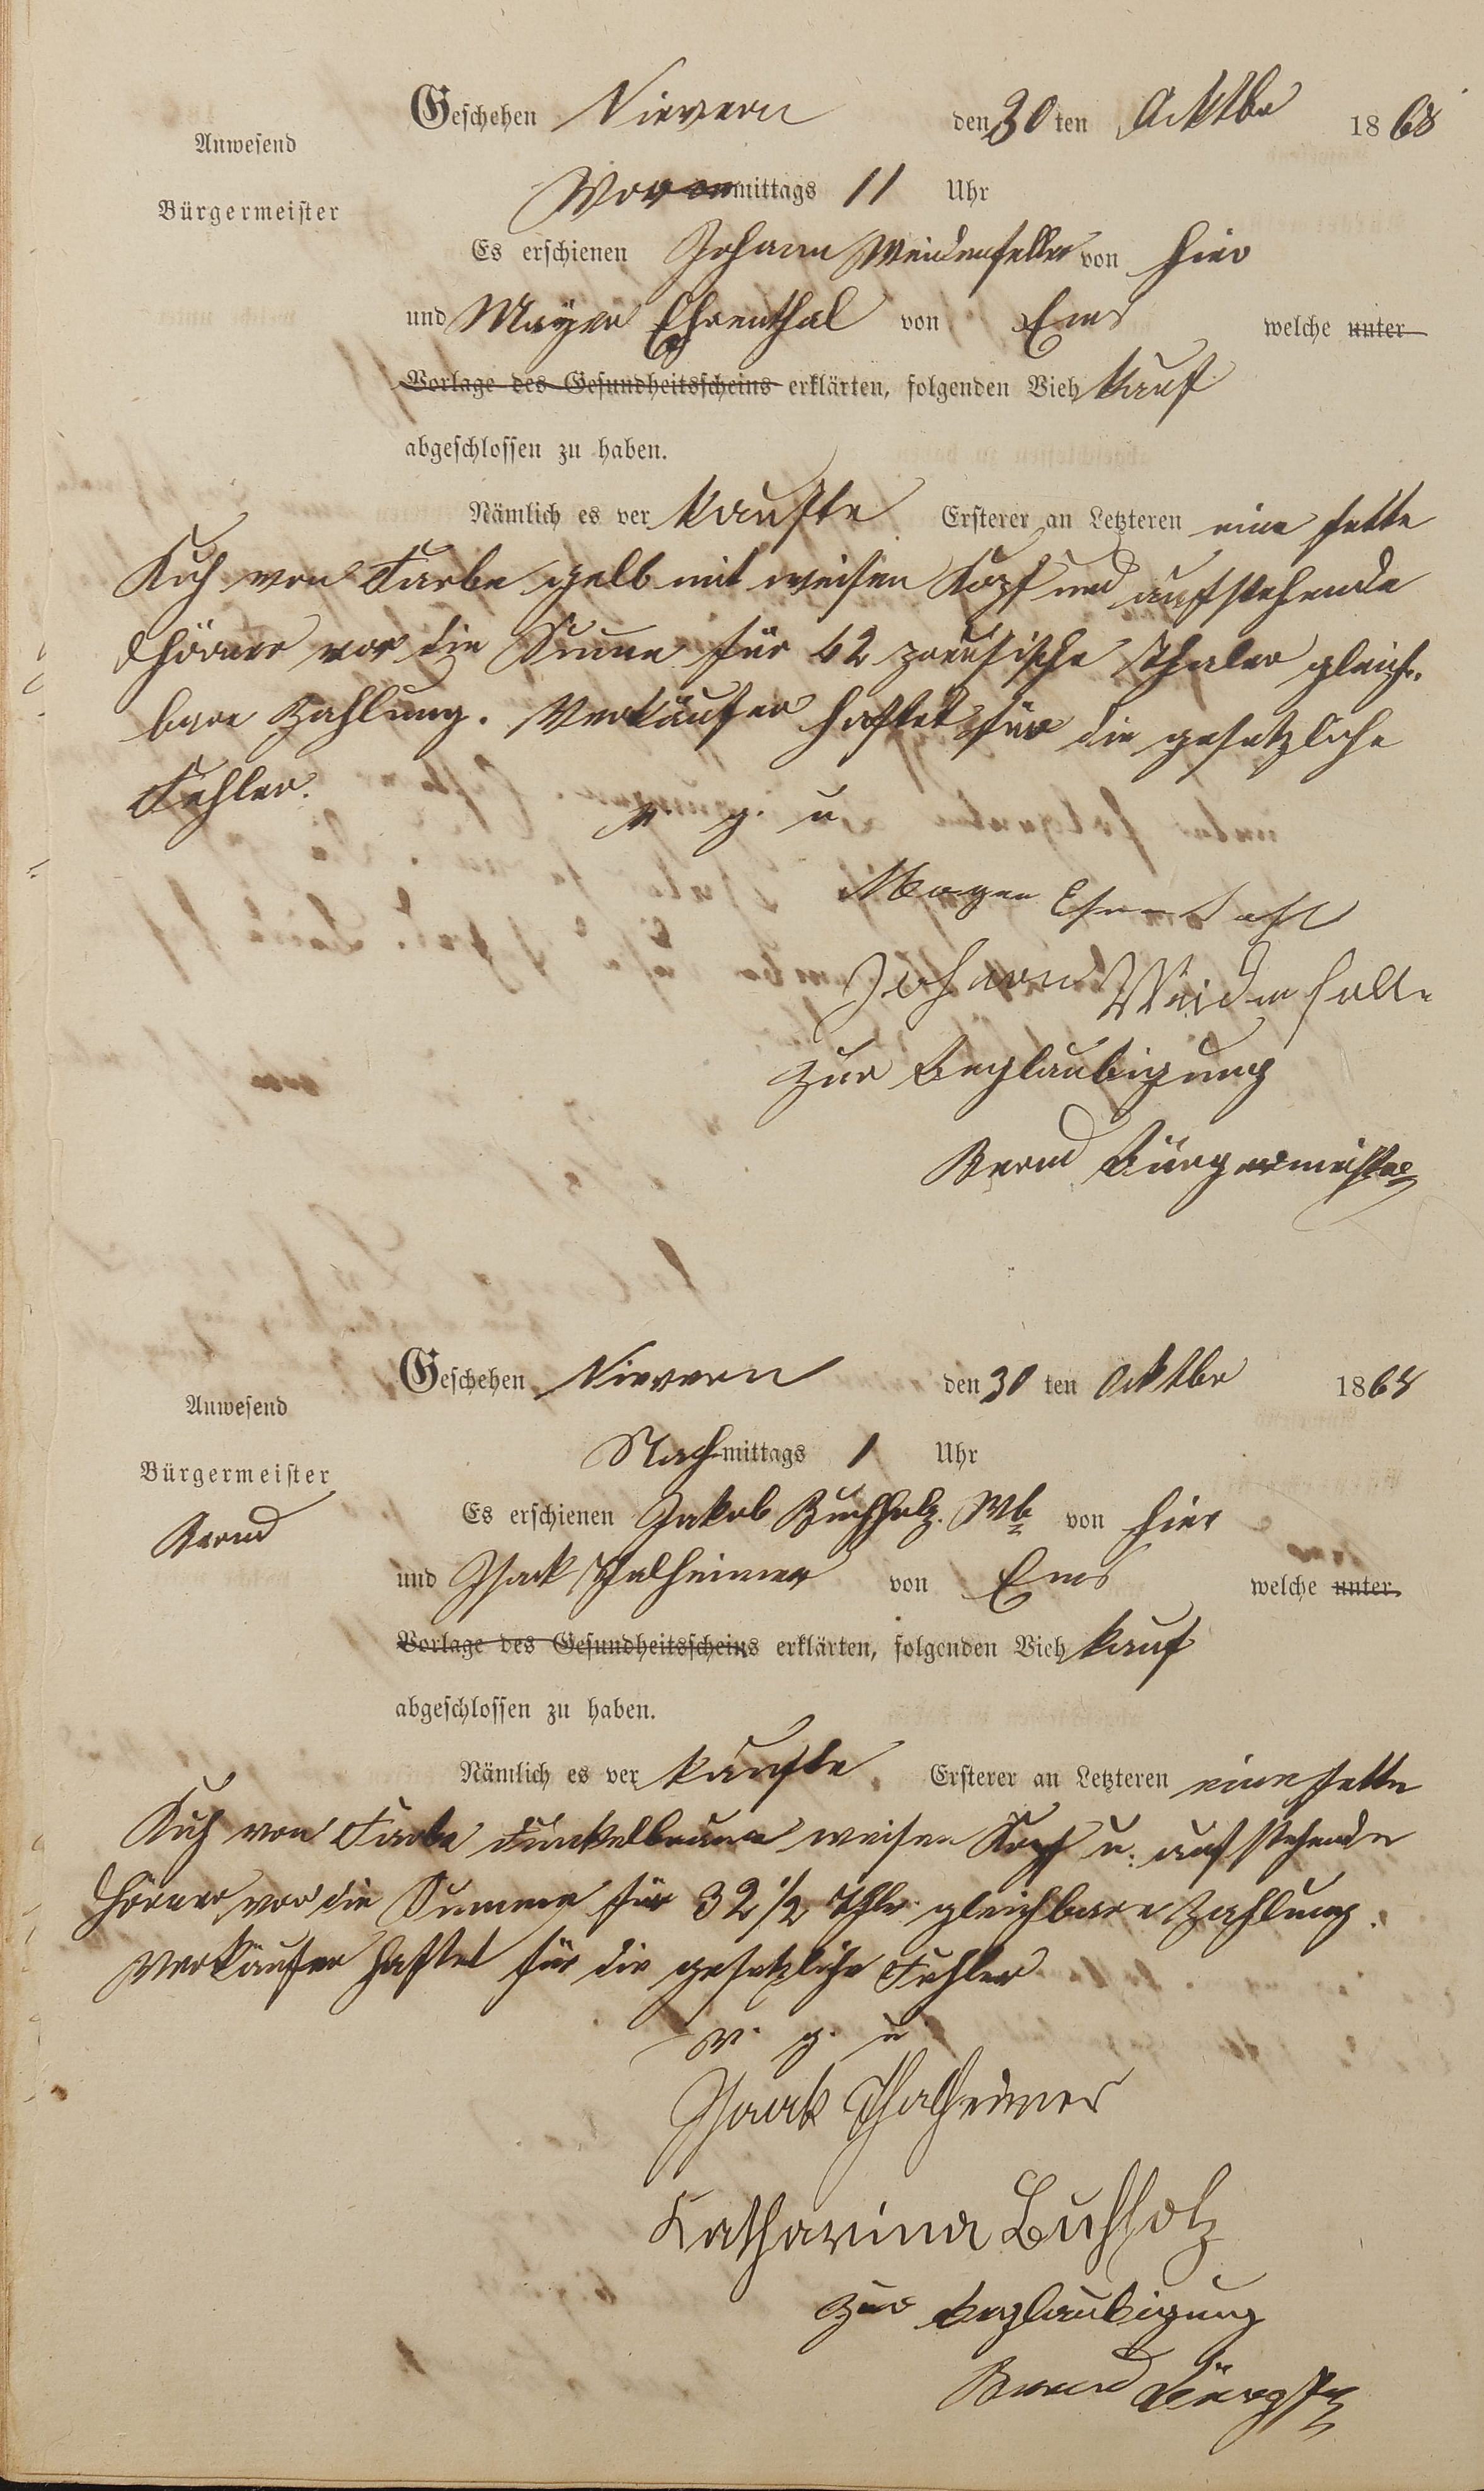 Geschehen Nievern den 30 ten Ocktbr 1868
Anwesend
Vormittags 11 Uhr
Bürgermeister
Es erschienen Johann Weidenfeller von hier
und Mayer Ehrenthal von Ems welche unter
Vorlage des Gesundheitsscheins erklärten, folgenden Vieh kauf
abgeschlossen zu haben.
Nämlich es ver kaufte Ersterer an Letzteren eine fette
Kuh von Farbe gelb mit weisen Kopf und aufstehende
Hörner vor die Sume für 42 preusische Thaler gleich
bare Zahlung. Verkäufer haftet für die gesetzliche
Fehler.
v. g. u
Mayer Ehrenthal
Johann Weidenfeller
Zur Beglaubigung
Bürgermeister
Geschehen Nievern den 30 ten Ocktbr 1868
Anwesend
Nachmittags 1 Uhr
Bürgermeister
Es erschienen Jakob Buchholz Wb von hier
und Isack Thalheimer von Ems welche unter
Vorlage des Gesundheitsscheins erklärten, folgenden Vieh kauf
abgeschlossen zu haben.
Nämlich es ver kaufte Ersterer an Letzteren eine fette
Kuh von Farbe dunkelbraun weisen Kopf u. aufstehende
Hörner vor die Summe für 32 1/2 Thlr gleichbare Zahlung.
Verkäufer haftet für die gesetzliche Fehler
v. g. u
Isaak Thalheimer
Katharina Buchholz
Zur Beglaubigung